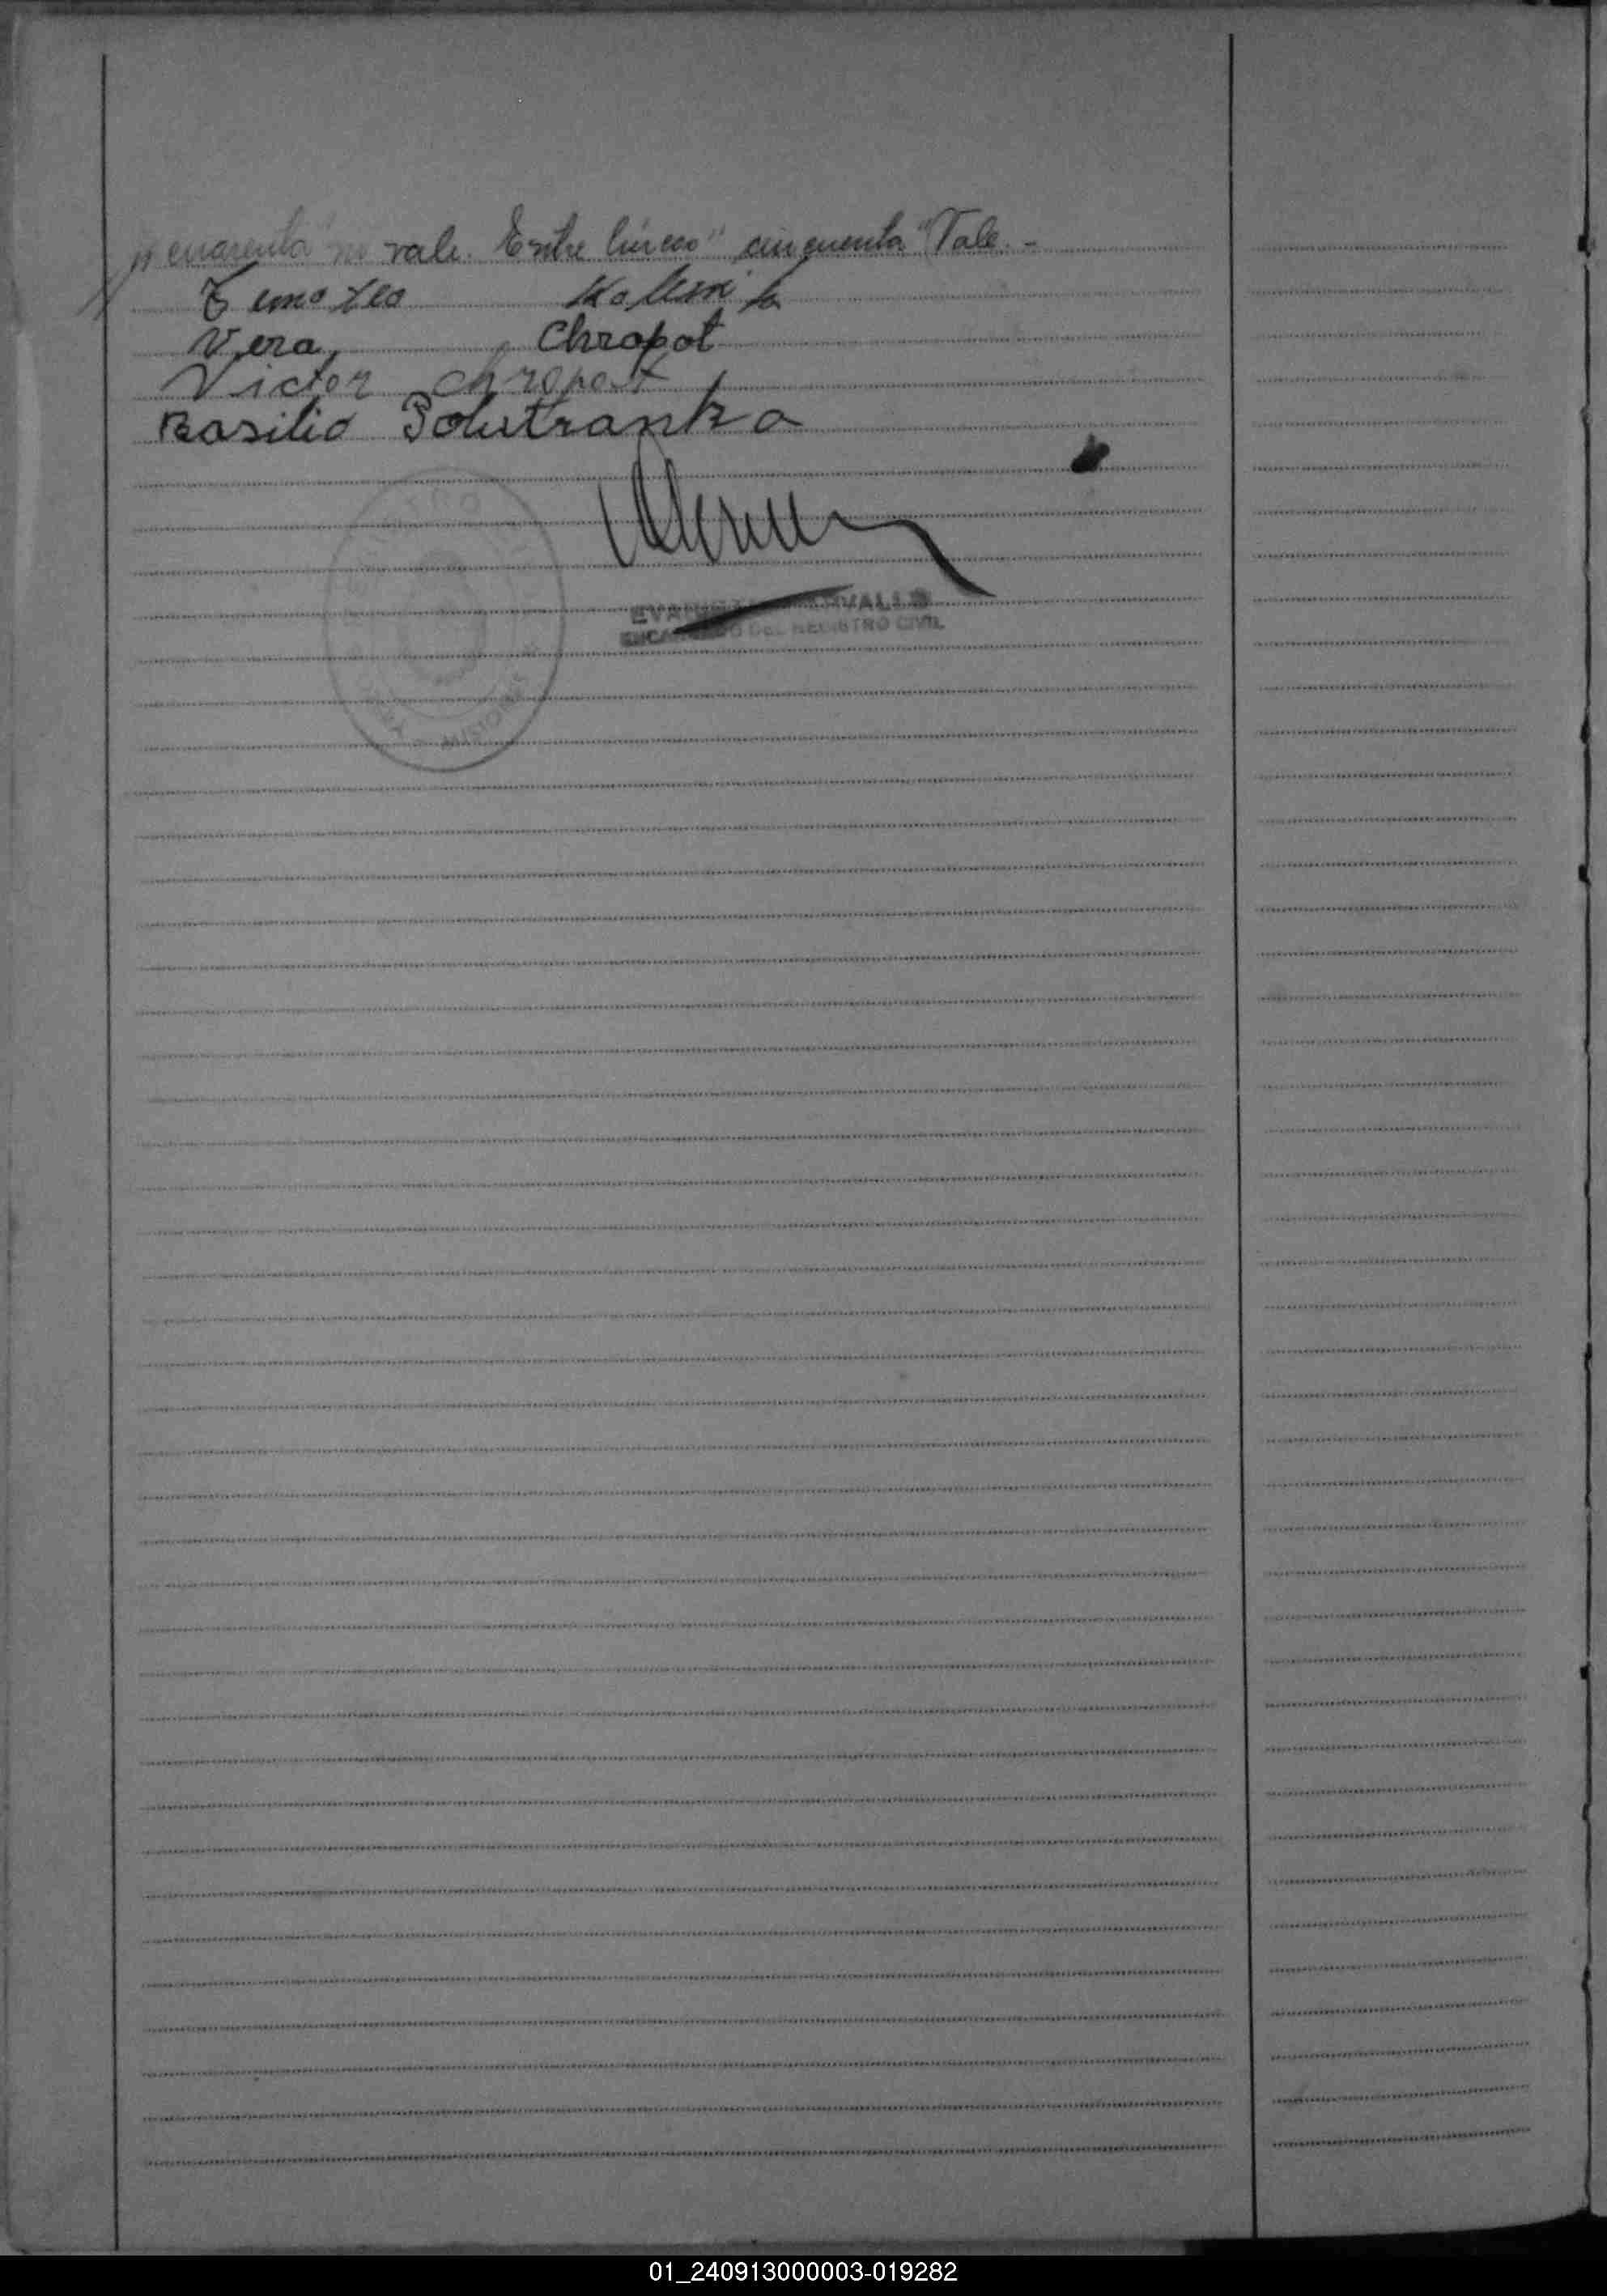 "cuarenta" no vale. Entre líneas "cincuenta" Vale. -
Timoteo
Vera Chrapot
Victor Chropot
Basilio Polutranka
ENCARGADO DEL REGISTRO CIVIL
MISIONES
01_240913000003-019282